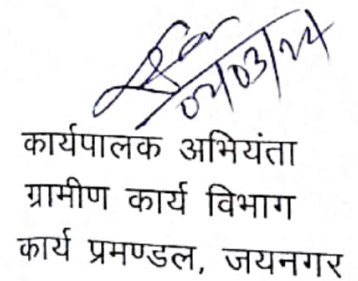 02/03/24
कार्यपालक अभियंता
ग्रामीण कार्य विभाग
कार्य प्रमण्डल, जयनगर